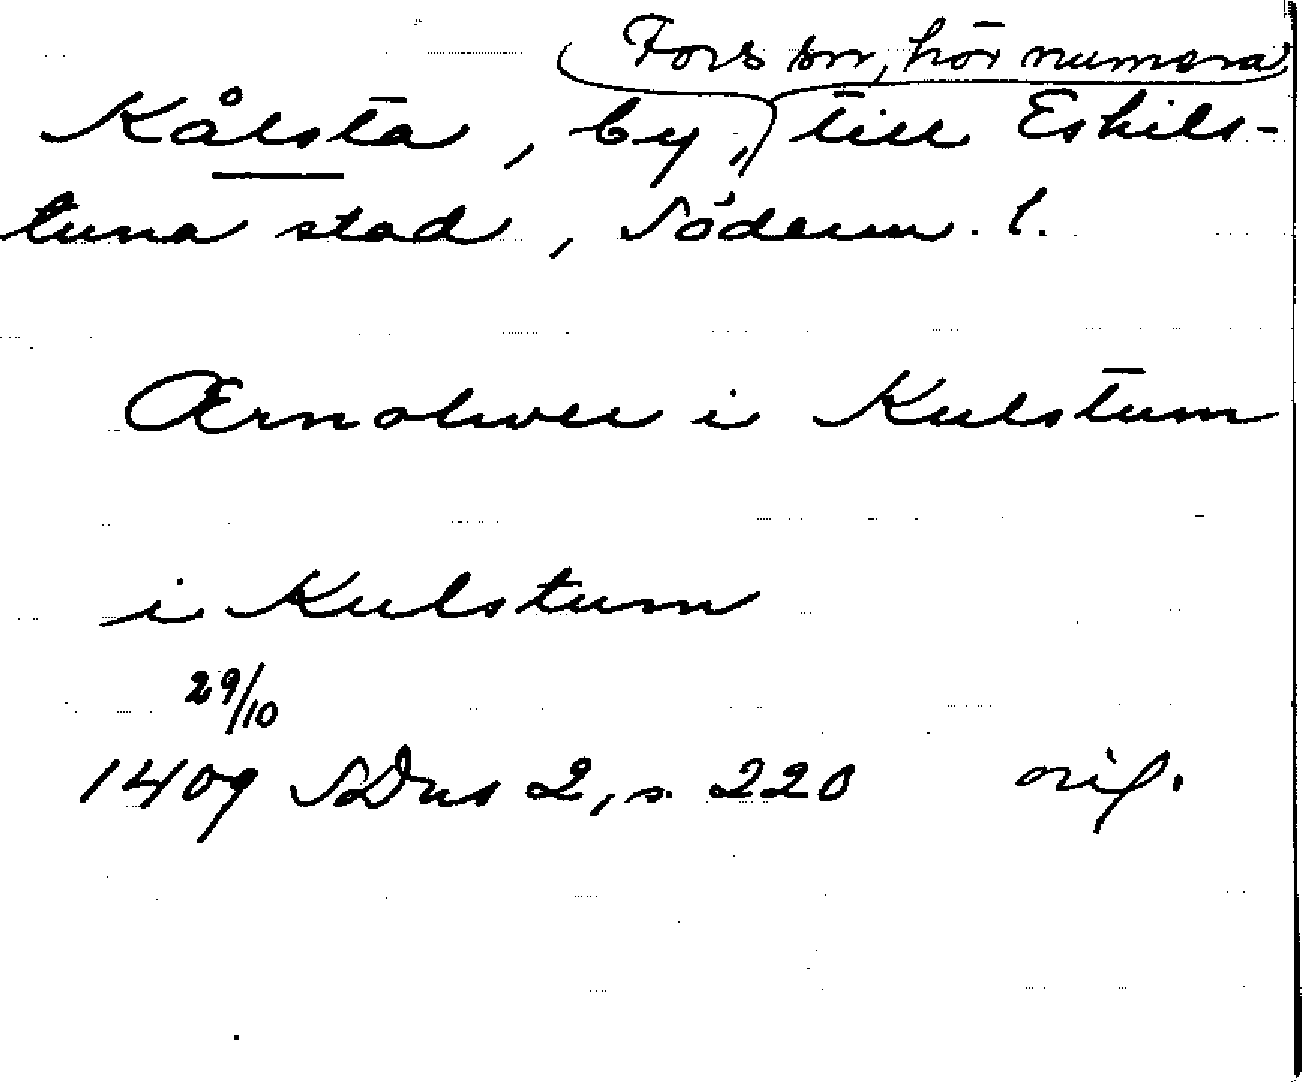 Fors sn, hör numera
Kålsta, by, till Eskils-
tuna stad, Söderm. l.
Ærnolwer i Kulstum
i Kulstum
29/10
1409 SDns 2, s. 220 orig.